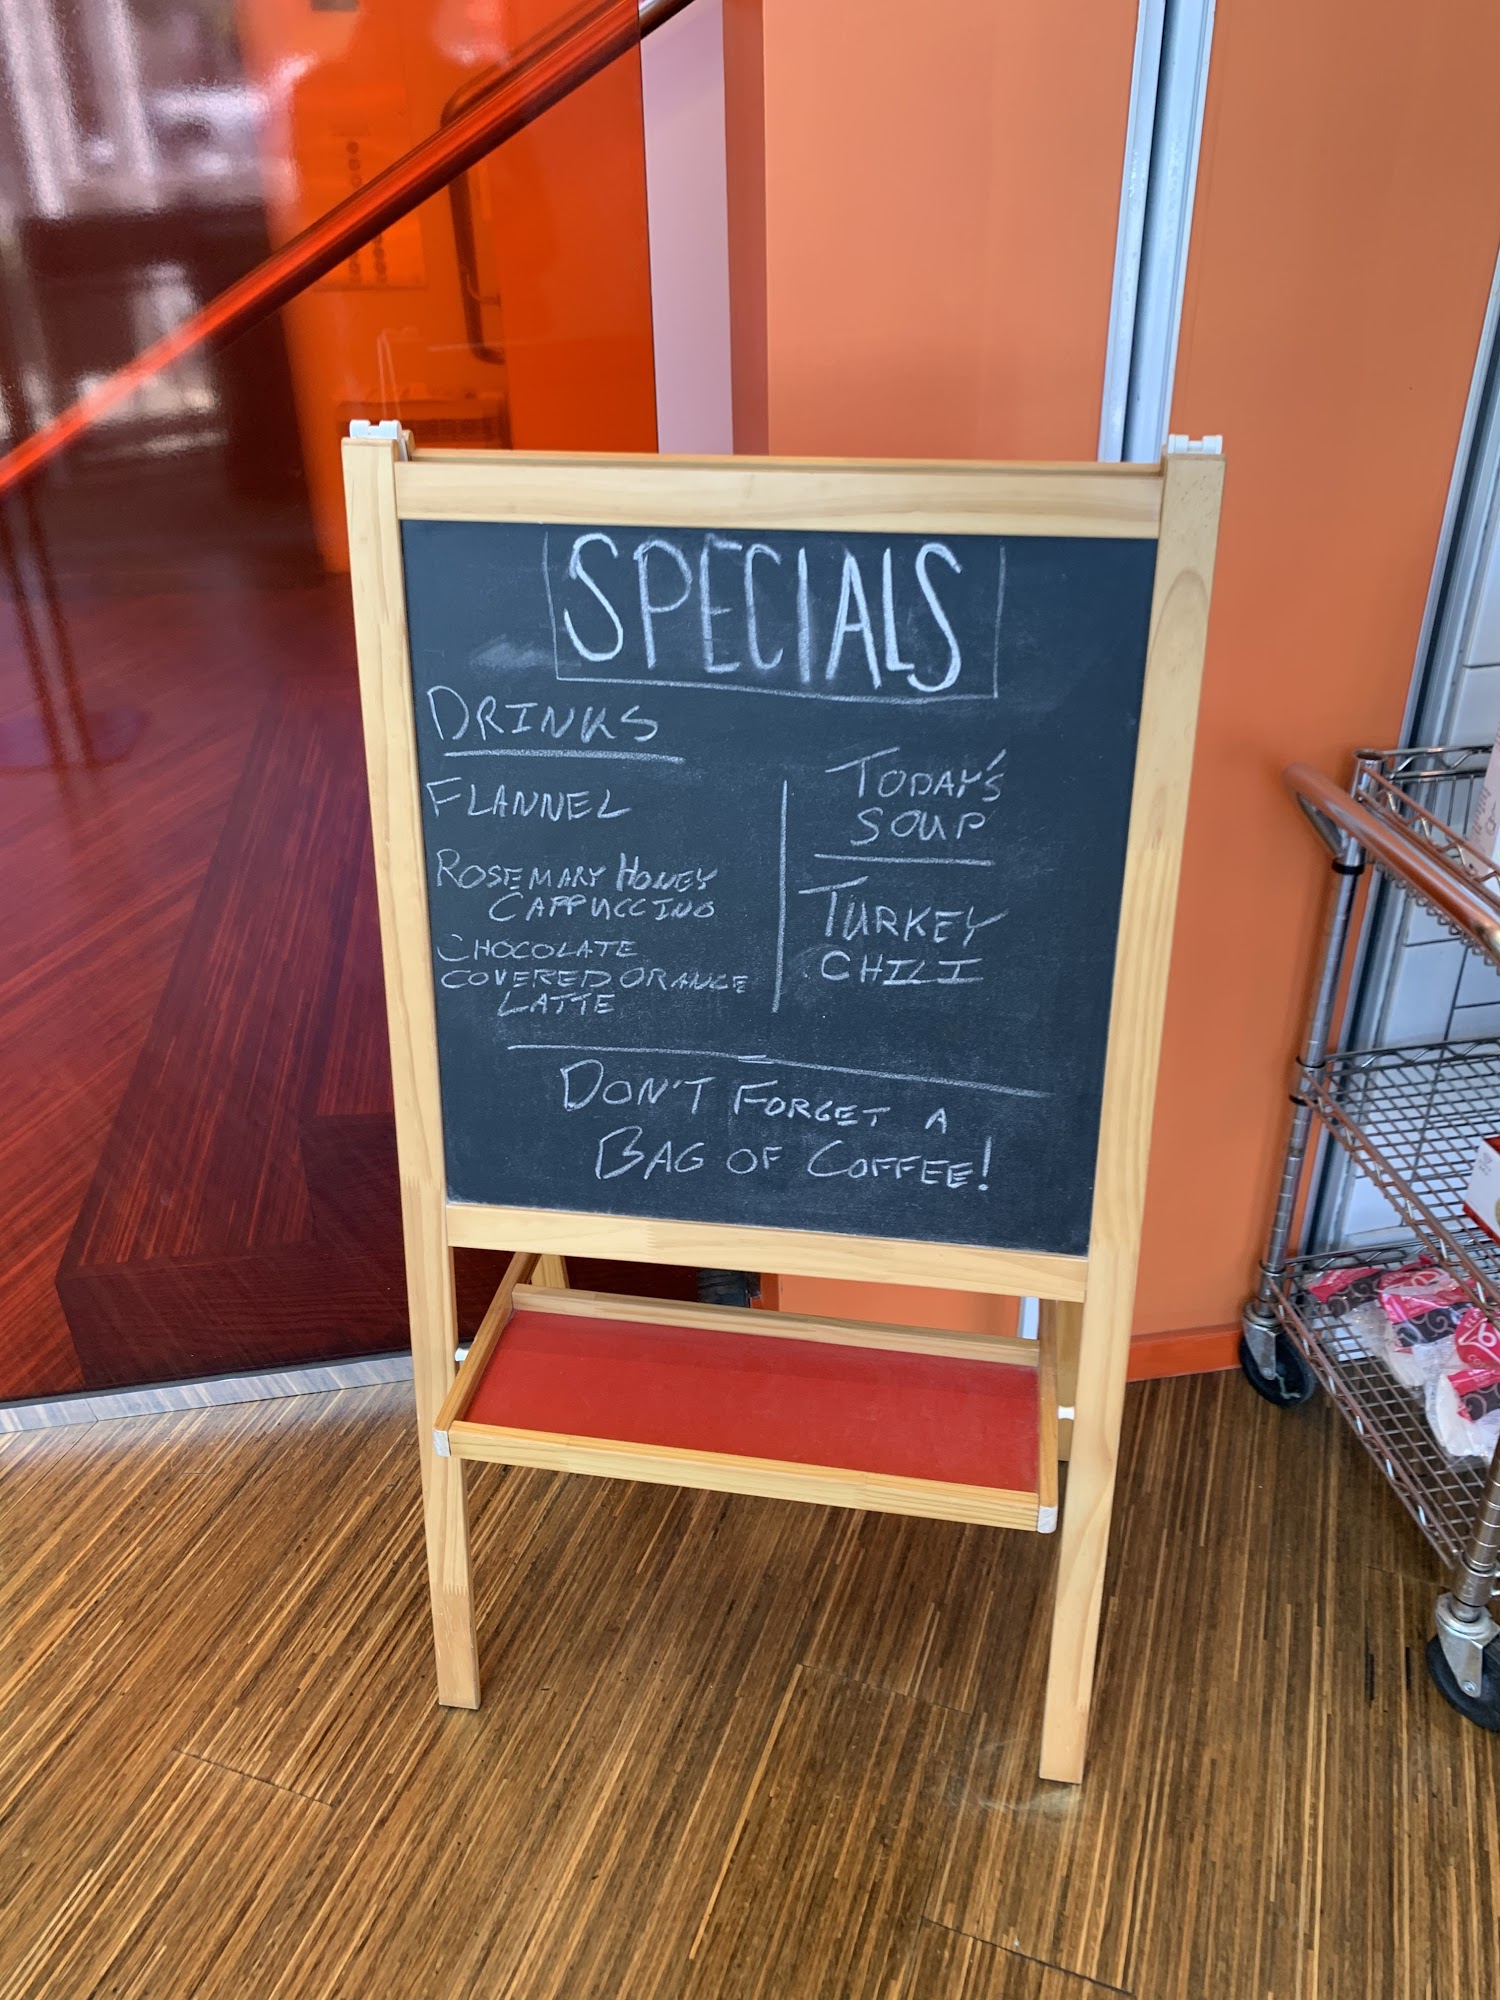 SPECIALS
DRINKS
FLANNEL
ROSEMARY HONEY
CAPPUCCINO
CHOCOLATE
COVERED ORANGE
LATTE
TODAY'S
SOUP
TURKEY
CHILI
DON'T FORGET A
BAG OF COFFEE!